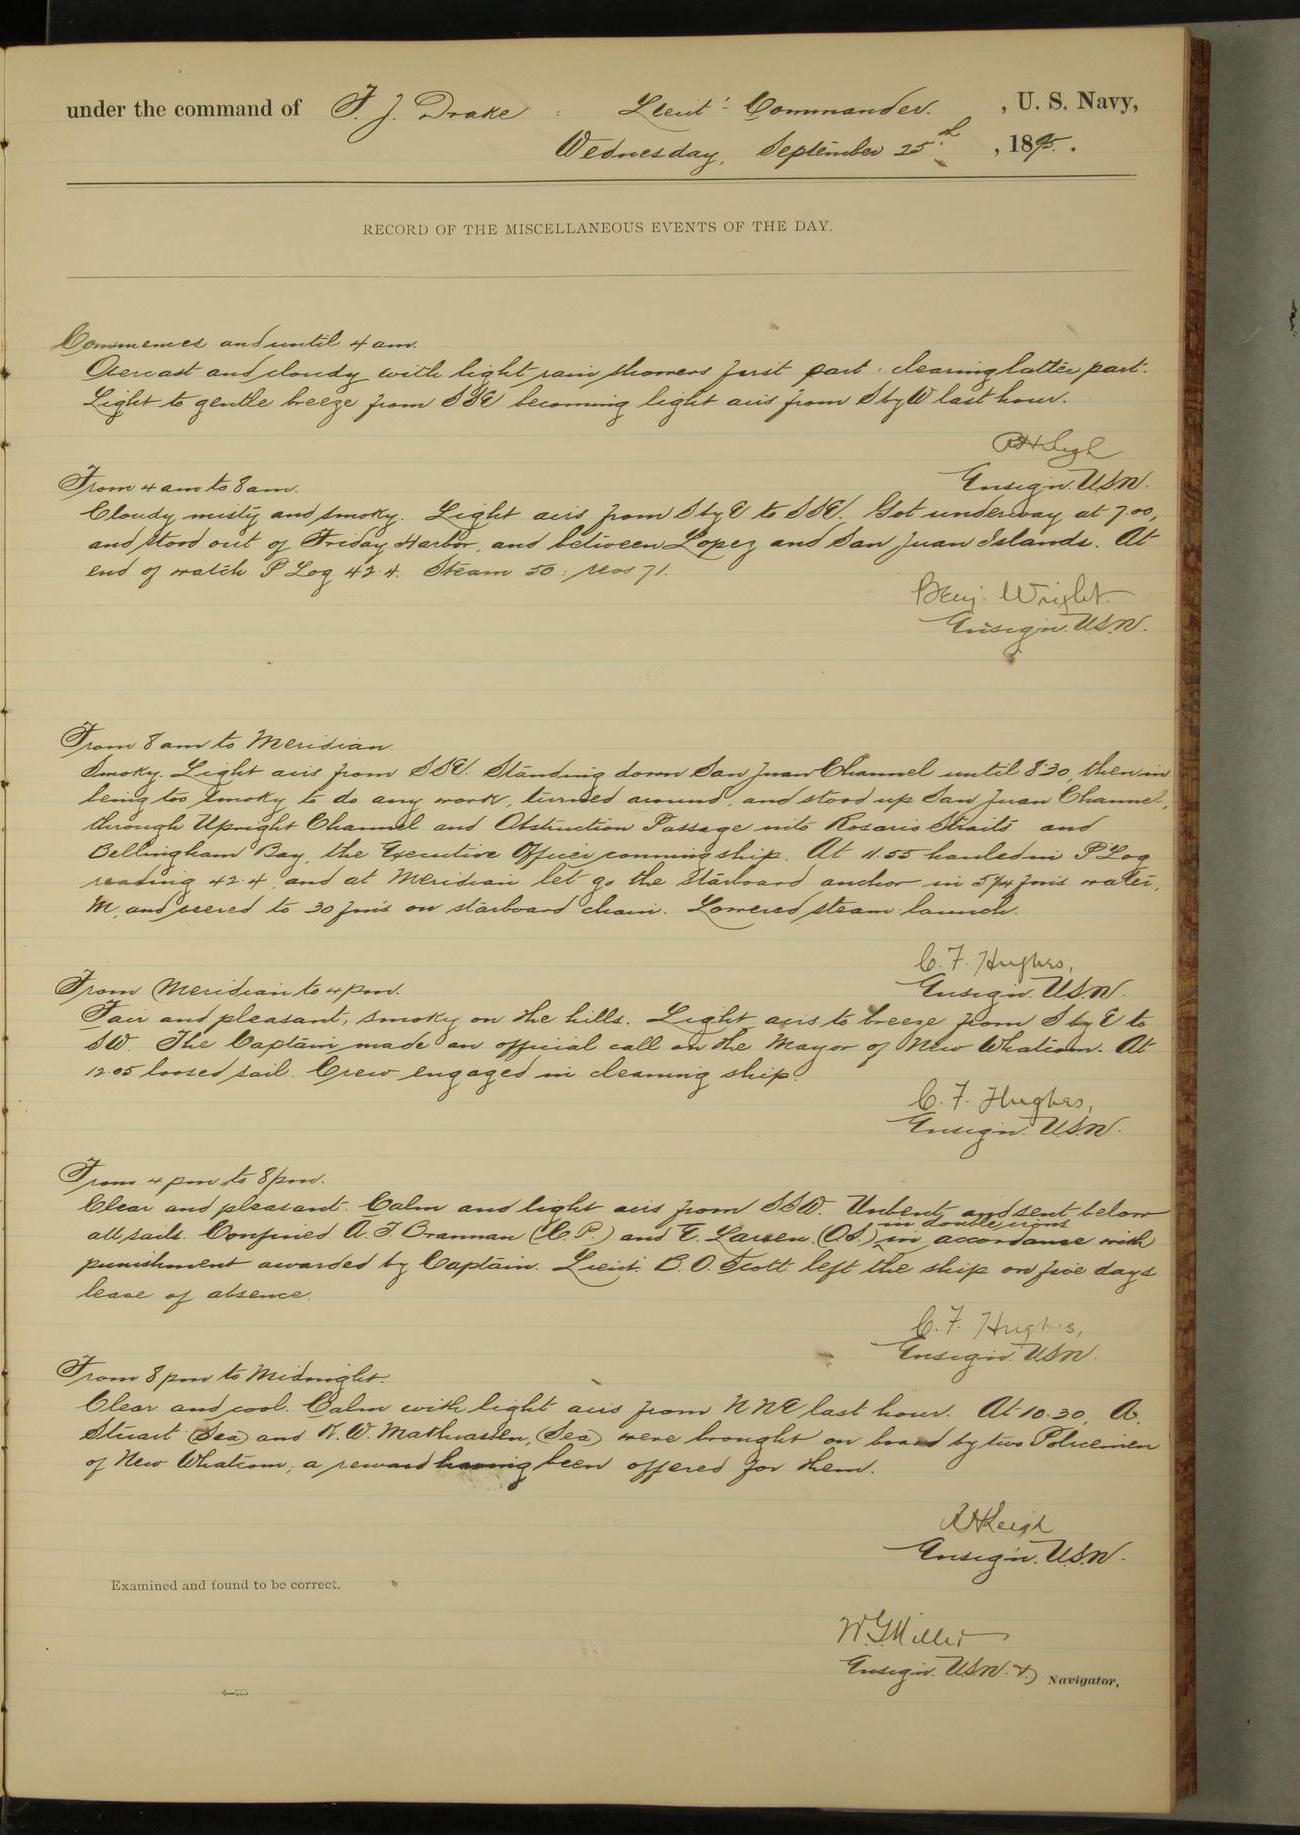 under the command of F. J. Drake : Lieut: Commander. , U. S. Navy,
Wednesday, September 25th. , 1895. .
RECORD OF THE MISCELLANEOUS EVENTS OF THE DAY.
Commences and until 4 am.
Overcast and cloudy with light rain showers first part: clearing latter part.
Light to gentle breeze from SSE becoming light airs from S by W last hour.
RH Leigh
Ensign. U.S.N.
From 4 am to 8 am.
Cloudy misty and smoky. Light airs from S by E to SSE. Got underway at 7.00,
and stood out of Friday Harbor, and between Lopez and San Juan Islands. At
end of watch P Log 42.4. Steam 50: revs 71.
Benj. Wright.
Ensign. U.S.N.
From 8 am to Meridian
Smoky. Light airs from SSE. Standing down San Juan Channel until 8:30, then in
being too smoky to do any work, turned around, and stood up San Juan Channel,
through Upright Channel and Obstruction Passage into Rosario Straits and
Bellingham Bay, the Executive Officer conning ship. At 11.55 hauled in P Log
reading 42.4, and at Meridian let go the starboard anchor in 5 1/4 fms water,
M, and veered to 30 fms on starboard chain. Lowered steam launch.
C. F. Hughes,
Ensign. U.S.N.
From Meridian to 4 pm.
Fair and pleasant, smoky on the hills. Light airs to breeze from S by E to
SW. The Captain made an official call on the Mayor of New Whatcom. At
12.05 loosed sail. Crew engaged in cleaning ship.
C. F. Hughes,
Ensign. U.S.N.
From 4 pm to 8 pm.
Clear and pleasant. Calm and light airs from SSW. Unbent and sent below
all sails. Confined A. F. Brannan (C.P.) and E. Larsen. (OS.) in double irons in accordance with
punishment awarded by Captain. Lieut. B. O. Scott left the ship on five days
leave of absence.
C. F. Hughes,
Ensign. U.S.N.
From 8 pm to Midnight.
Clear and cool. Calm with light airs from NNE last hour. At 10.30, A.
Stuart (Sea) and K. W. Mathiasen, (Sea) were brought on board by two Policemen
of New Whatcom, a reward having been offered for them.
RH Leigh
Ensign. U.S.N.
Examined and found to be correct.
W. G. Miller
Ensign. U.S.N. &) Navigator.